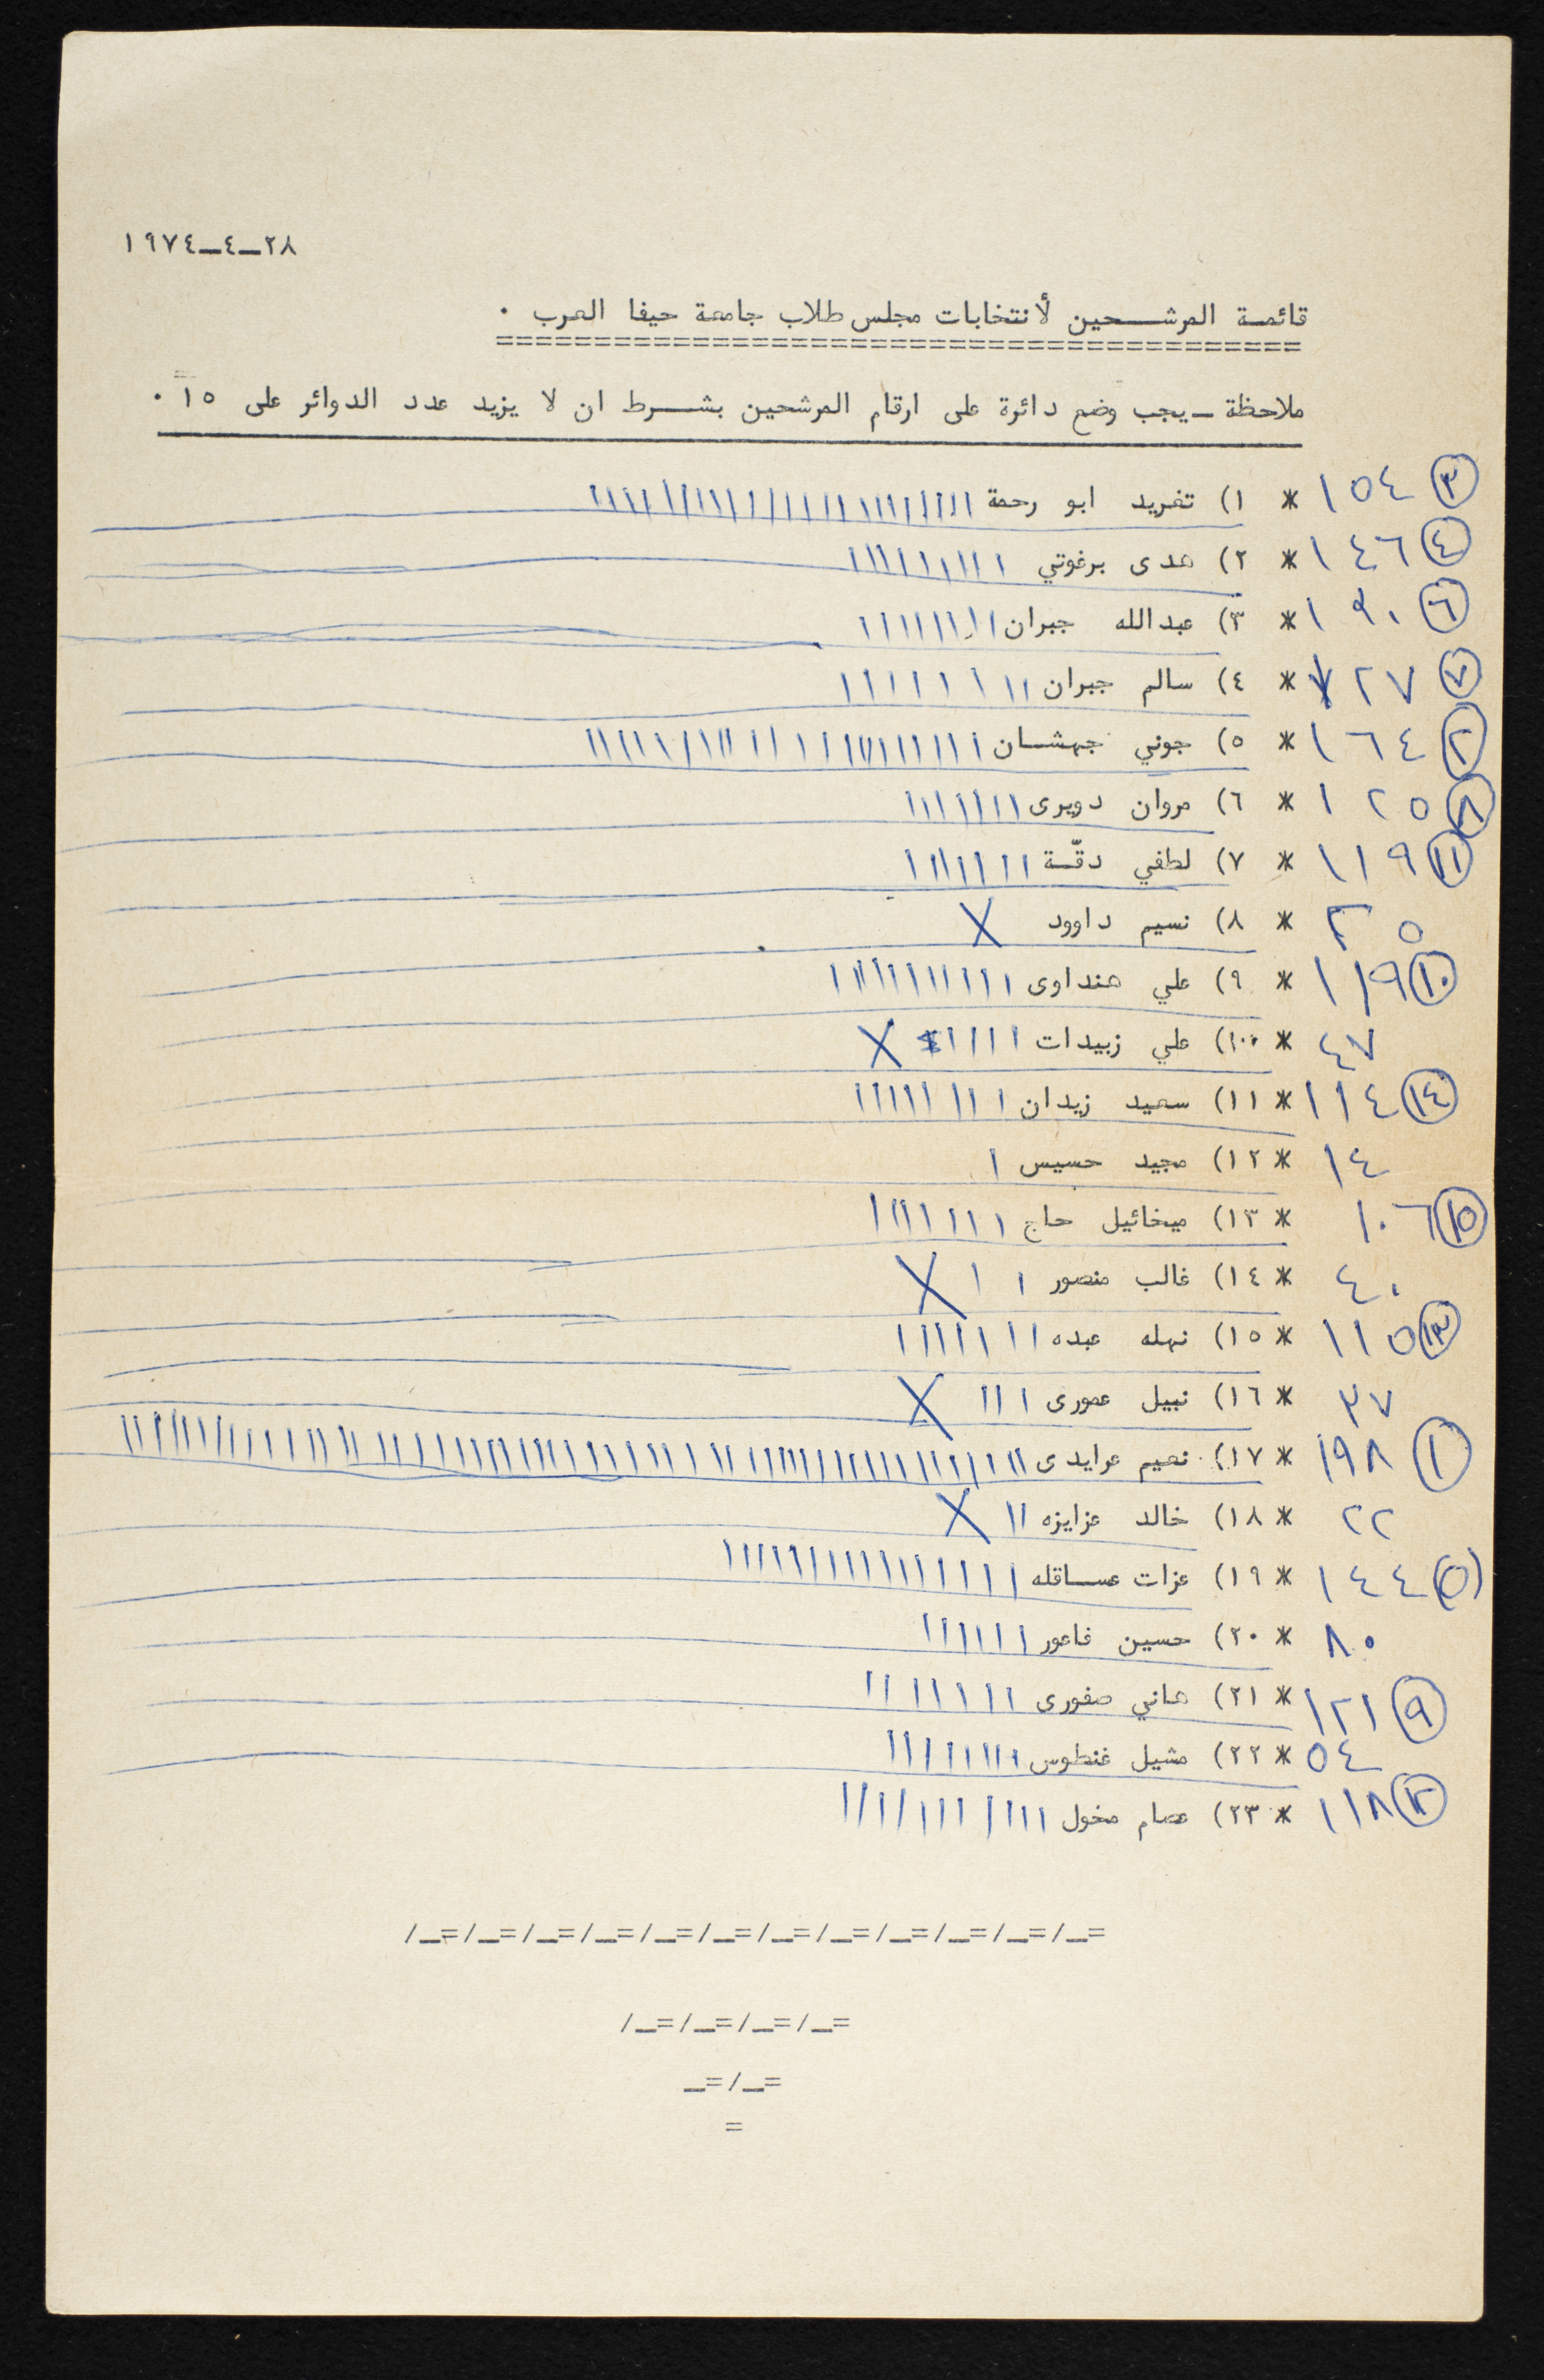 ٢٨-٤-١٩٧٤
قائمة المرشحين لأنتخابات مجلس طلاب جامعة حيفا العرب ٠
========================================
ملاحظة - يجب وضع دائرة على ارقام المرشحين بشرط ان لا يزيد عدد الدوائر على ١٥ ٠
٣ ١٥٤ * ١) تغريد ابو رحمة
٤ ١٤٦ * ٢) هدى برغوتي
٦ * ٣) عبدالله جبران
٧ * ٤) سالم جبران
٢ ١٦٤ * ٥) جوني جهشان
٨ ١٢٥ * ٦) مروان دويرى
١١ ١١٩ * ٧) لطفي دقّة
* ٨) نسيم داوود X
١٠ ١١٩ * ٩) علي هنداوى
٤٧ * ١٠) علي زبيدات X
١٤ ١١٤ * ١١) سعيد زيدان
١٤ * ١٢) مجيد حسيس
١٥ ١٠٦ * ١٣) ميخائيل حاج
٤٠ * ١٤) غالب منصور X
١٣ ١١٥ * ١٥) نهله عبده
٣٧ * ١٦) نبيل عمورى X
١ ١٩٨ * ١٧) نعيم عرايدى
٢٢ * ١٨) خالد عزايزه X
٥ ١٤٤ * ١٩) عزات عساقله
٨٠ * ٢٠) حسين فاعور
٩ ١٢١ * ٢١) هاني صفورى
٥٤ * ٢٢) مشيل غنطوس
١٢ ١١٨ * ٢٣) عصام مخول
=_/=_/=_/=_/=_/=_/=_/=_/=_/=_/=_/=_/
=_/=_/=_/=_/
=_/=_
=